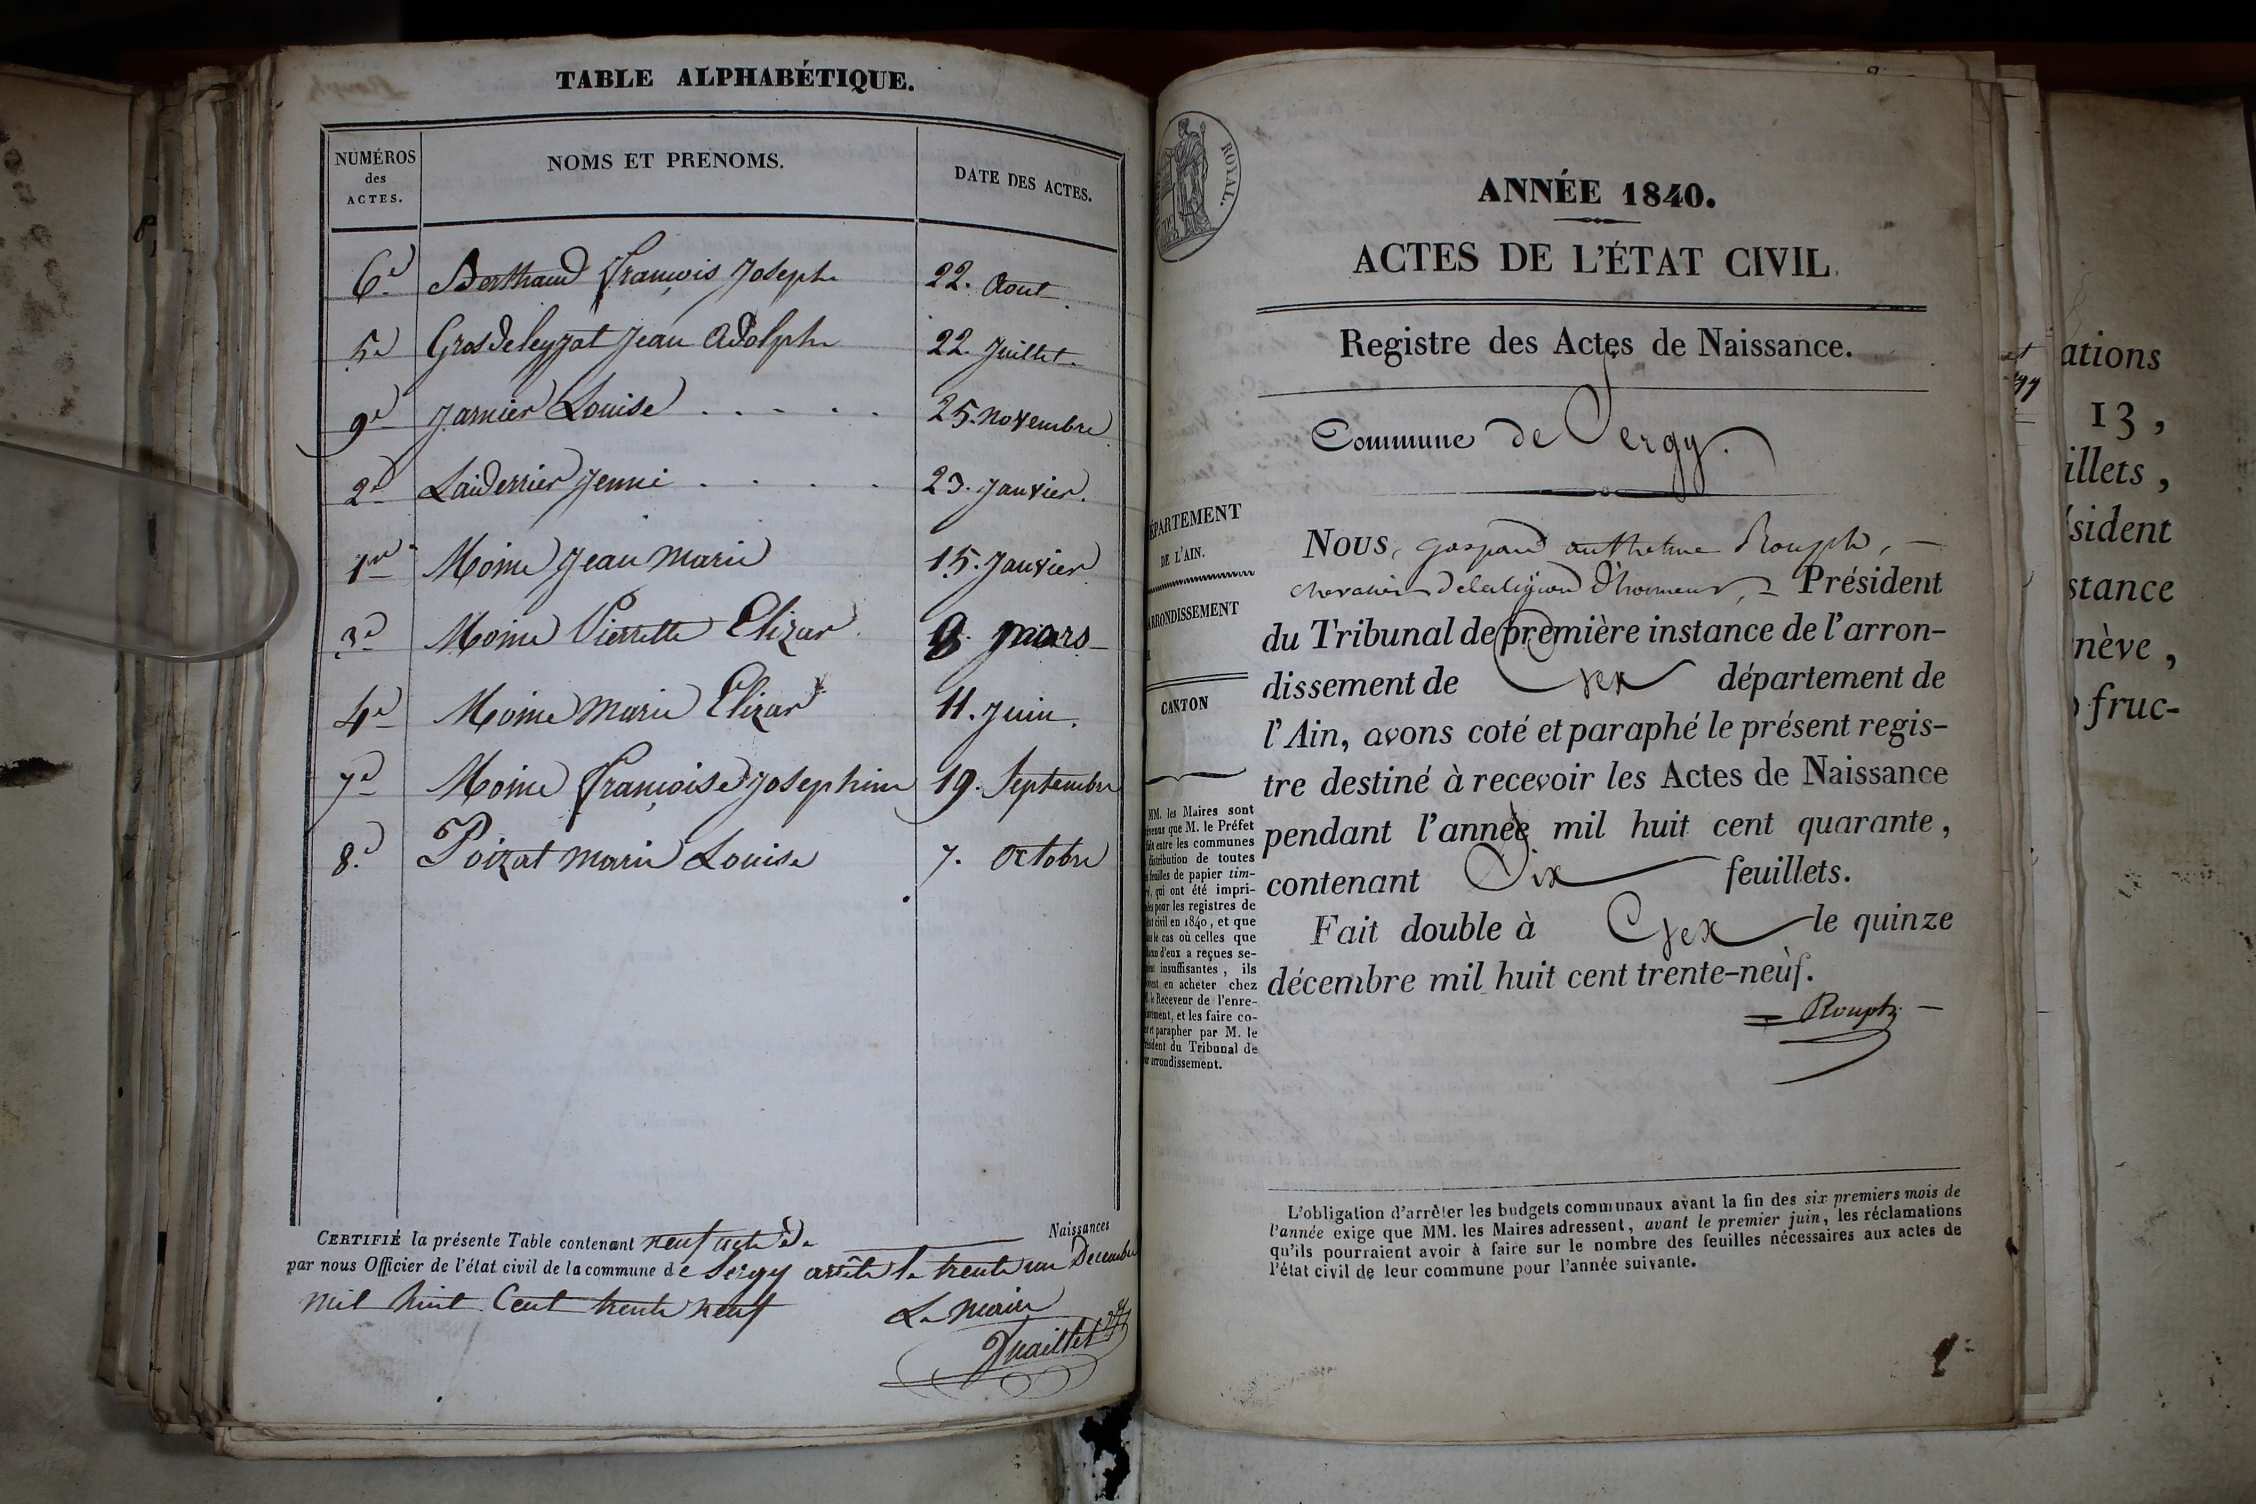 TABLE ALPHABÉTIQUE.
NUMÉROS des ACTES.
NOMS ET PRENOMS.
DATE DES ACTES.
6e Berthaud François Joseph 22. Aout
5e Grosdeleyzat Jean Adolphe 22. Juillet.
9e Jarnier Louise . . . . . 25. Novembre
2e Laiderrier Jenni . . . . 23. Janvier.
1er Moine Jean Marie 15. Janvier
3e Moine Pierrette Elizar 8. mars
4e Moine Marie Elizar 11. Juin.
7e Moine Françoise Josephine 19. Septembre
8.e Poizat Marie Louise 7. Octobre
CERTIFIÉ la présente Table contenant neuf acte de Naissances
par nous Officier de l'état civil de la commune de Sergy arrêté le trente un Decembre
mil huit Cent trente neuf
Le maire
ROYAL.
ANNÉE 1840.
ACTES DE L'ÉTAT CIVIL.
Registre des Actes de Naissance.
Commune de Sergy.
DÉPARTEMENT
DE L'AIN.
ARRONDISSEMENT
CANTON
MM. les Maires sont
que M. le Préfet
entre les communes
distribution de toutes
feuilles de papier tim-
qui ont été impri-
pour les registres de
civil en 1840, et que
le cas où celles que
d'eux a reçues se-
insuffisantes, ils
en acheter chez
le Receveur de l'enre-
et les faire co-
et parapher par M. le
Président du Tribunal de
arrondissement.
NOUS, gaspard anthelme Rouph,
chevalier de la légion d'honneur, Président
du Tribunal de première instance de l'arron-
dissement de Gex département de
l'Ain, avons coté et paraphé le présent regis-
tre destiné à recevoir les Actes de Naissance
pendant l'année mil huit cent quarante,
contenant Dix feuillets.
Fait double à Gex le quinze
décembre mil huit cent trente-neuf.
Rouph
L'obligation d'arrêter les budgets communaux avant la fin des six premiers mois de
l'année exige que MM. les Maires adressent, avant le premier juin, les réclamations
qu'ils pourraient avoir à faire sur le nombre des feuilles nécessaires aux actes de
l'état civil de leur commune pour l'année suivante.
ations
13,
illets,
sident
stance
nève,
fruc-